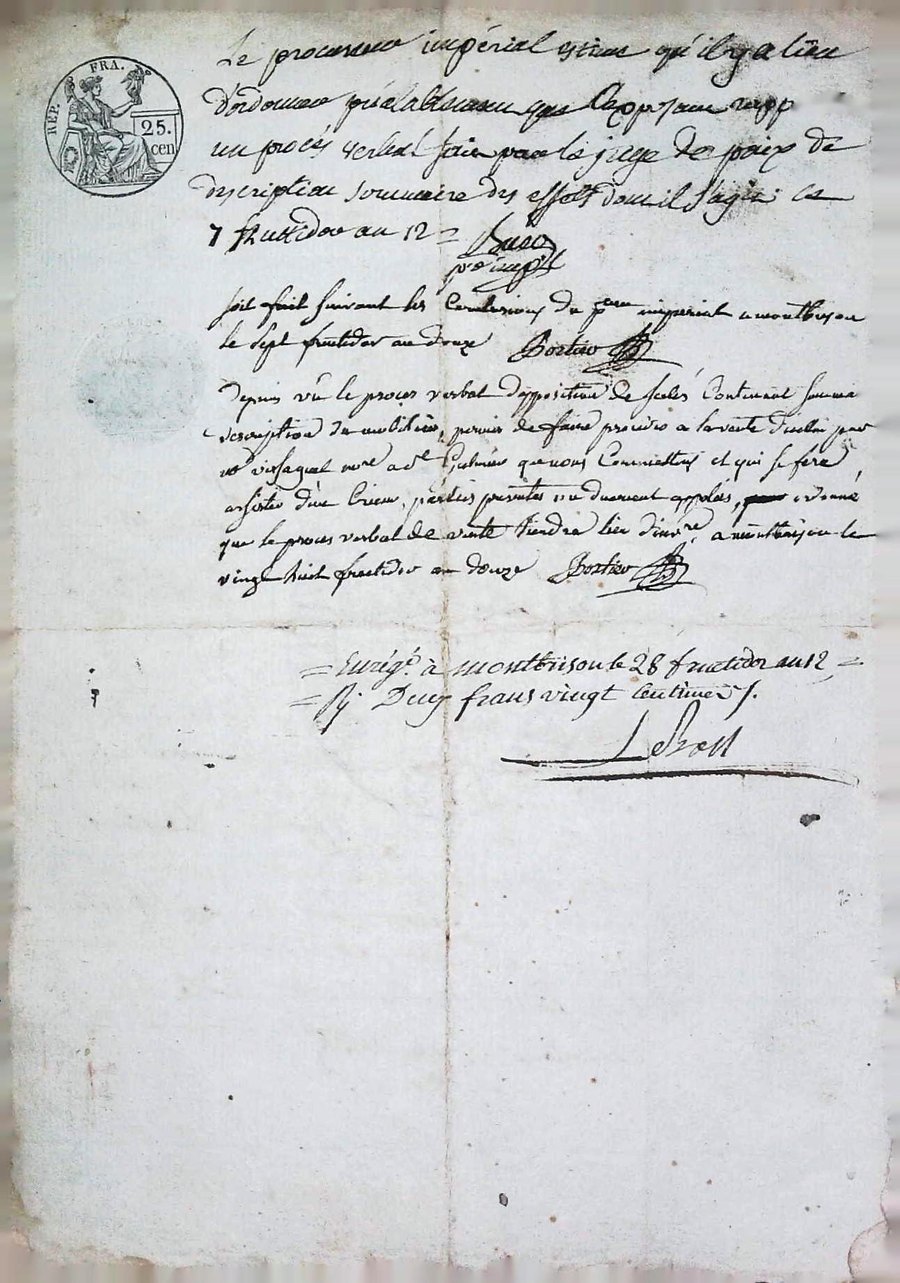 REP. FRA.
25.
cen
Le procureur impérial estime qu'il y a lieu
d'ordonner préalablement que l'exposant rapp
un procès verbal fait par le juge de paix de
description sommaire des effets dont il s'agit; ce
7 fructidor an 12
soit fait suivant les Conclusions du imperial a montbrison
le sept fructidor an douze Bortier
Depuis vû le proces verbal d'apposition de scelés Contenant somma
description du mobilier, permis de faire procéder a la vente d'icelui par
me que nous Commettons et qui se fera
assister d'un Crieur, parties presentes ou duement appelées, ordonné
que le proces verbal de vente tiendra lieu d'invre, a montbrison le
vingt huit fructidor an douze Bortier
= Enrégé. à montbrison le 28 fructidor an 12
= Deux francs vingt Centimes